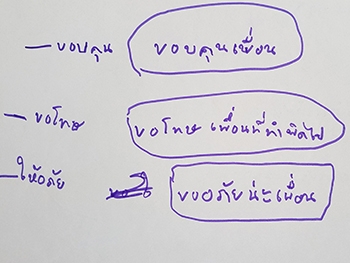 — ขอบคุน ขอบคุนเพื่อน
— ขอโทษ ขอโทษ เพื่อนที่ทำผิดไป
— ให้อภัย ขออภัยน่ะเพื่อน